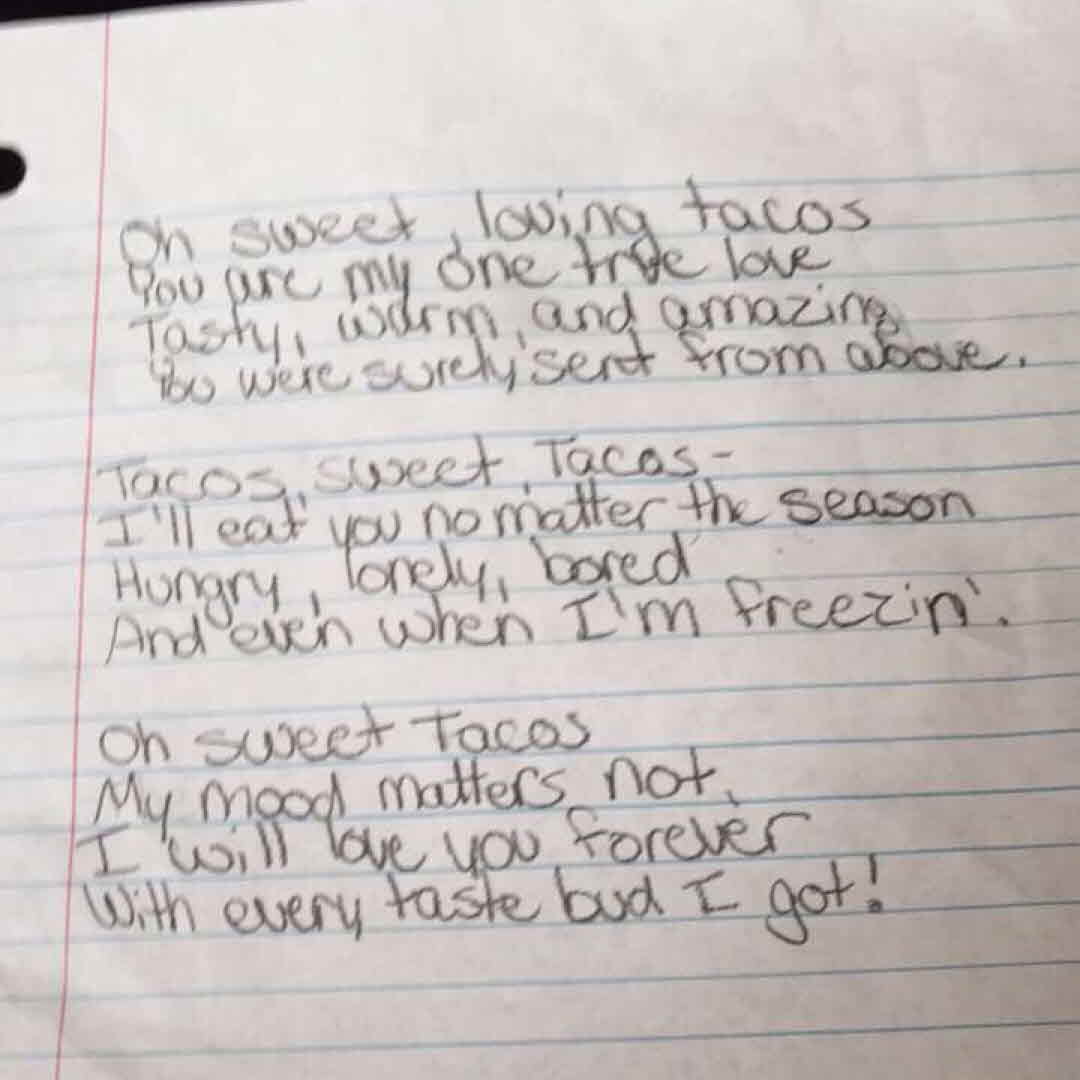 Oh sweet, loving tacos
You are my one true love
Tasty, warm, and amazing
You were surely sent from above.
Tacos, sweet, Tacos-
I'll eat you no matter the season
Hungry, lonely, bored
And even when I'm freezin'.
Oh sweet Tacos
My mood matters not,
I will love you forever
With every taste bud I got!